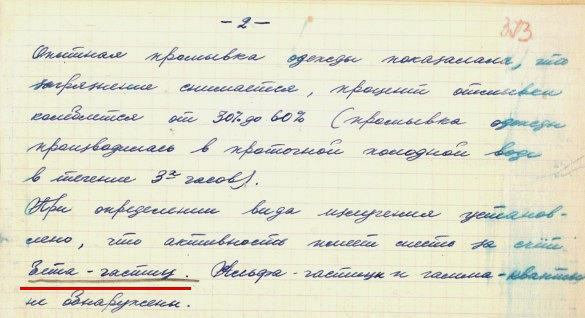 – 2 –
313
Опытная промывка одежды показала, что
загрязнение снимается, процент отмывки
колеблется от 30% до 60% (промывка одежды
производилась в проточной холодной воде
в течение 3х часов).
При определении вида излучения установ-
лено, что активность имеет место за счёт
Бета-частиц. Альфа-частицы и гамма-кванты
не обнаружены.